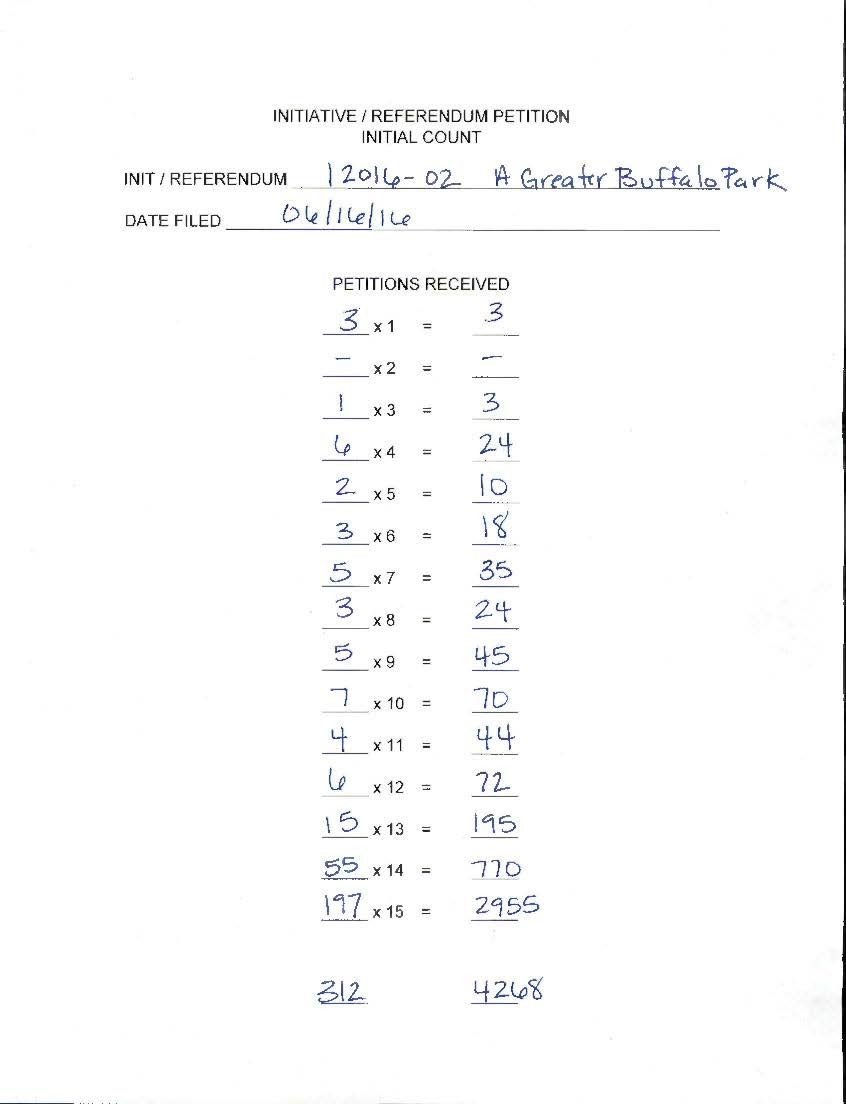 INITIATIVE / REFERENDUM PETITION
INITIAL COUNT
INIT / REFERENDUM I 2016-02 A Greater Buffalo Park
DATE FILED 06/16/16
PETITIONS RECEIVED
3 x 1 = 3
- x 2 = -
1 x 3 = 3
6 x 4 = 24
2 x 5 = 10
3 x 6 = 18
5 x 7 = 35
3 x 8 = 24
5 x 9 = 45
7 x 10 = 70
4 x 11 = 44
6 x 12 = 72
15 x 13 = 195
55 x 14 = 770
197 x 15 = 2955
312 4268